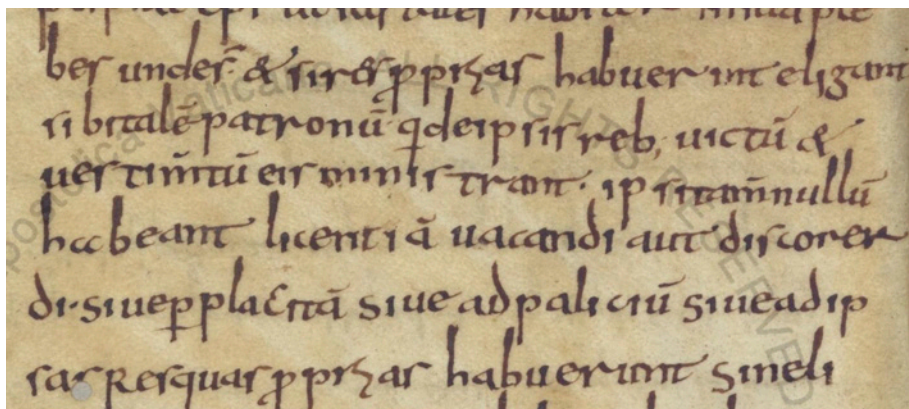 bes undeē· & si res ꝓprias habuerint eligant
sibi talē patronū· q de ipsis reb; uictū &
uestim̄tū eis ministrant· ipsi tam̄ nullū
habeant licentiā uacandi aut discorer
di· siue ꝑ placitā siue ad paliciū siue ad ip
sas Res quas ꝓprias habuerint sine li